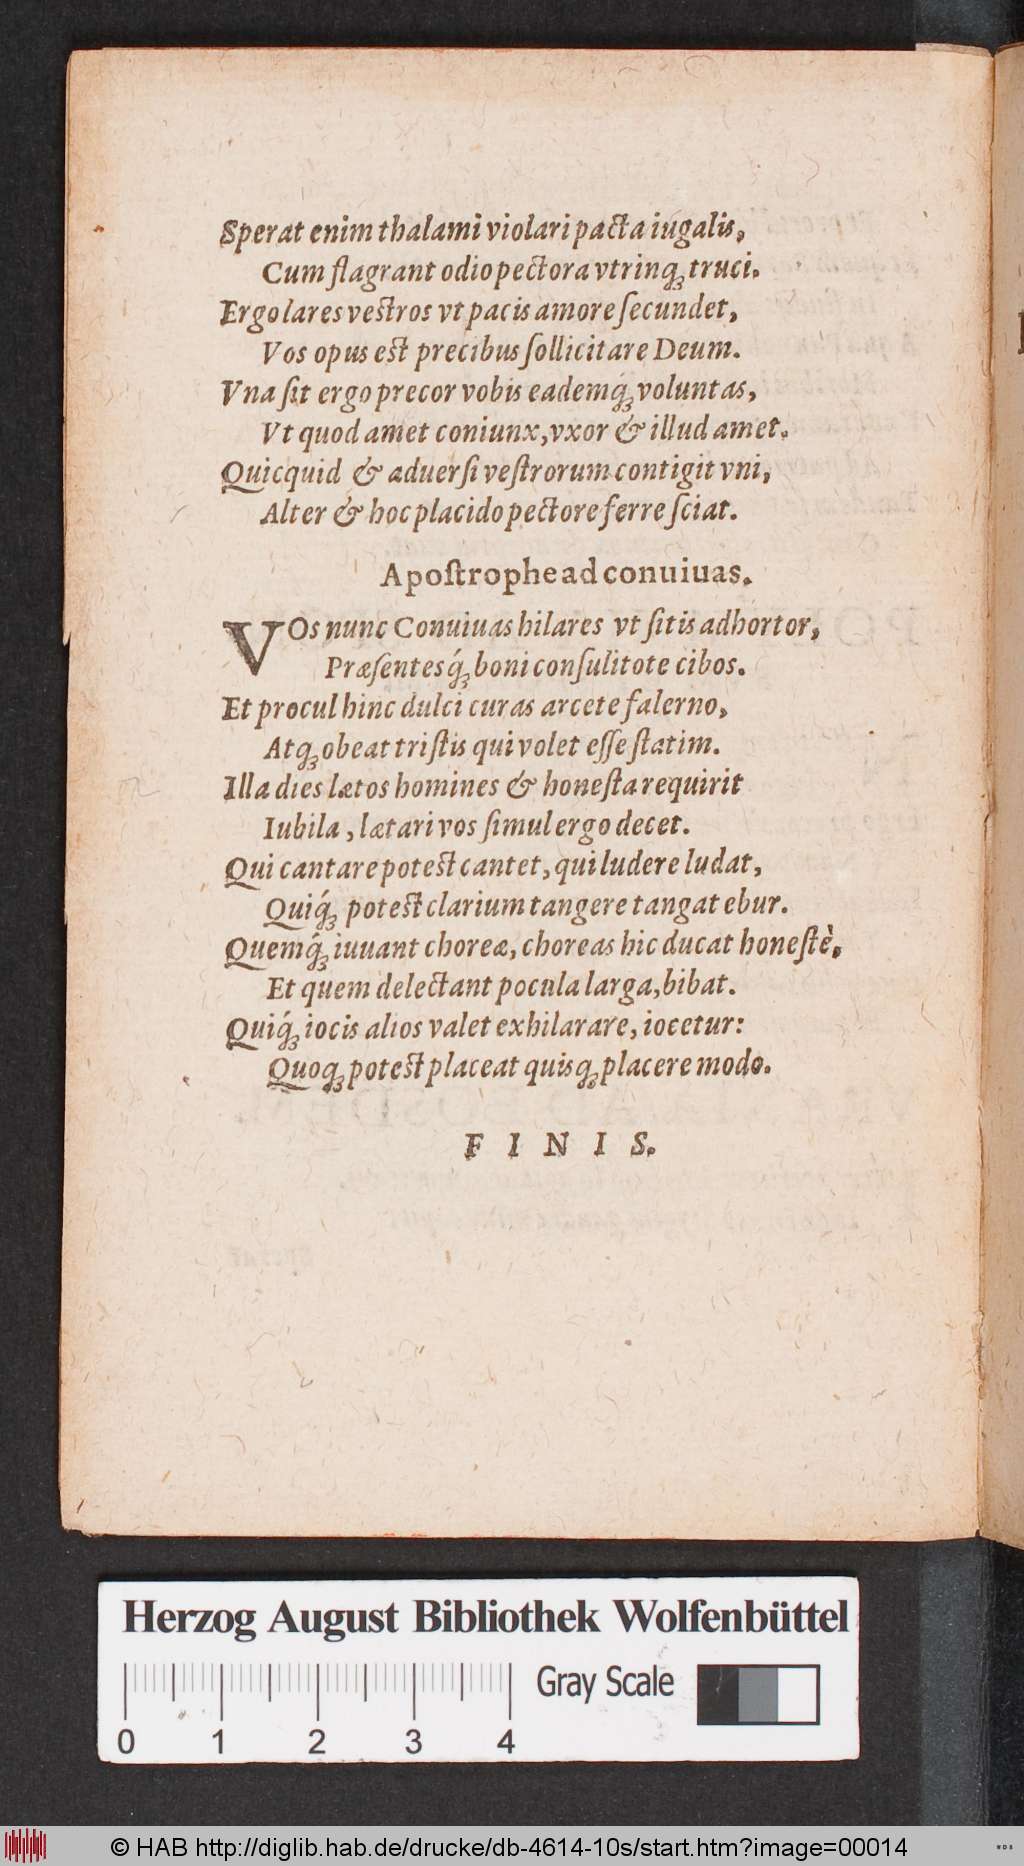 Sperat enim thalami violari pacta iugalis,
Cum flagrant odio pectora vtrinq; truci.
Ergo lares vestros vt pacis amore ſecundet,
Vos opus est precibus ſollicitare Deum.
Vna ſit ergo precor vobis eademq́; voluntas,
Vt quod amet coniunx, vxor & illud amet.
Quicquid & aduerſi veſtrorum contigit vni,
Alter & hoc placido pectore ferre ſciat.
Apoſtrophe ad conuiuas.
VOs nunc Conuiuas hilares vt ſitis adhortor,
Præſentesq́; boni conſulitote cibos.
Et procul hinc dulci curas arcete falerno,
Atq; obeat triſtis qui volet eſſe ſtatim.
Illa dies lætos homines & honeſta requirit
Iubila, lætari vos ſimul ergo decet.
Qui cantare potest cantet, qui ludere ludat,
Quiq́; potest clarium tangere tangat ebur.
Quemq́; iuuant choreæ, choreas hic ducat honeſtè,
Et quem delectant pocula larga, bibat.
Quiq́; iocis alios valet exhilarare, iocetur:
Quoq; potest placeat quisq; placere modo.
F I N I S.
Herzog August Bibliothek Wolfenbüttel
Gray Scale
0 1 2 3 4
© HAB http://diglib.hab.de/drucke/db-4614-10s/start.htm?image=00014